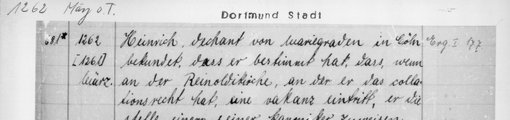 1262 März o.T.
Dortmund Stadt
1262 Heinrich, dechant von Mariegraden in Cöln Erg. I 177.
[1260] bekundet, dass er bestimmt hat, dass, wenn
März. an der Reinoldikirche, an der er das colla-
tionsrecht hat, eine vakanz eintritt, er die
stelle einem seiner kanoniker zuweisen